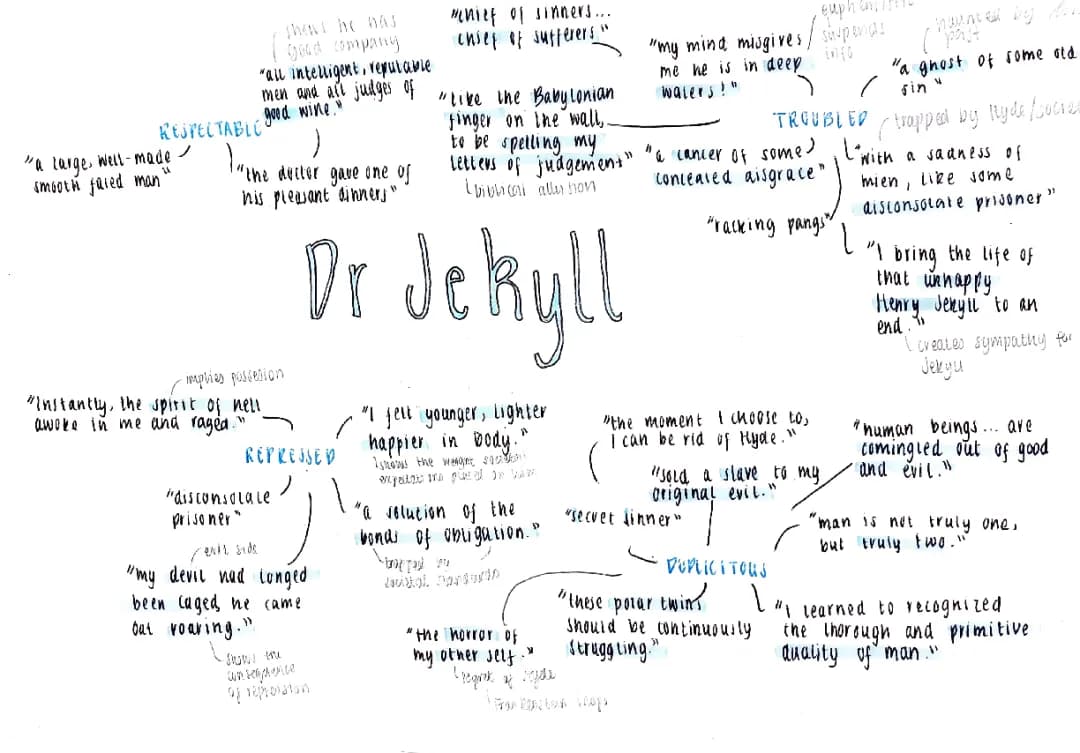 shows he has
good company
"all intelligent, reputable
men and all judges of
good wine."
RESPECTABLE
"a large, well-made
smooth faced man"
"the doctor gave one of
his pleasant dinners"
"chief of sinners...
chief of sufferers"
"like the Babylonian
finger on the wall,
to be spelling my
letters of judgement"
biblical allusion
"my mind misgives
me he is in deep
waters!"
suspends
info
haunted by
past
"a ghost of some old
sin"
TROUBLED
trapped by Hyde/
"a cancer of some
concealed disgrace"
"with a sadness of
mien, like some
disconsolate prisoner"
"racking pangs"
"I bring the life of
that unhappy
Henry Jekyll to an
end."
creates sympathy for
Jekyll
Dr Jekyll
implies possesion
"Instantly, the spirit of hell
awoke in me and raged."
REPRESSED
"I felt younger, lighter
happier in body."
shows the weight
placed
"disconsolate
prisoner"
"a solution of the
bonds of obligation."
trapped
societal standards
evil side
"my devil had longed
been caged, he came
out roaring."
shows the
consequence
of repression
"the moment I choose to,
I can be rid of Hyde."
"sold a slave to my
original evil."
"human beings... are
comingled out of good
and evil."
"secret sinner"
"man is not truly one,
but truly two."
DUPLICITOUS
"the horror of
my other self."
regret of Hyde
"these polar twins
should be continuously
struggling."
"I learned to recognized
the thorough and primitive
duality of man."